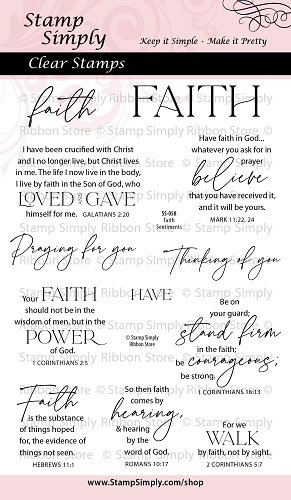 Stamp
Simply
Keep it Simple · Make it Pretty
Clear Stamps
faith
FAITH
I have been crucified with Christ
and I no longer live, but Christ lives
in me. The life I now live in the body,
I live by faith in the Son of God, who
LOVED AND GAVE
himself for me. GALATIANS 2:20
Have faith in God...
whatever you ask for in
prayer
believe
that you have received it,
and it will be yours.
MARK 11:22, 24
SS-058
Faith
Sentiments
Praying for you
Thinking of you
Your FAITH
should not be in the
wisdom of men, but in the
POWER
of God.
1 CORINTHIANS 2:5
HAVE
© Stamp Simply
Ribbon Store
Be on
your guard;
stand firm
in the faith;
be courageous;
be strong.
1 CORINTHIANS 16:13
Faith
is the substance
of things hoped
for, the evidence of
things not seen.
HEBREWS 11:1
So then faith
comes by
hearing,
& hearing
by the
word of God.
ROMANS 10:17
For we
WALK
by faith, not by sight.
2 CORINTHIANS 5:7
www.StampSimply.com/shop
© Stamp Simply
Ribbon Store